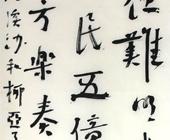 夜難明
民五億
方樂奏
浣溪沙和柳亞子